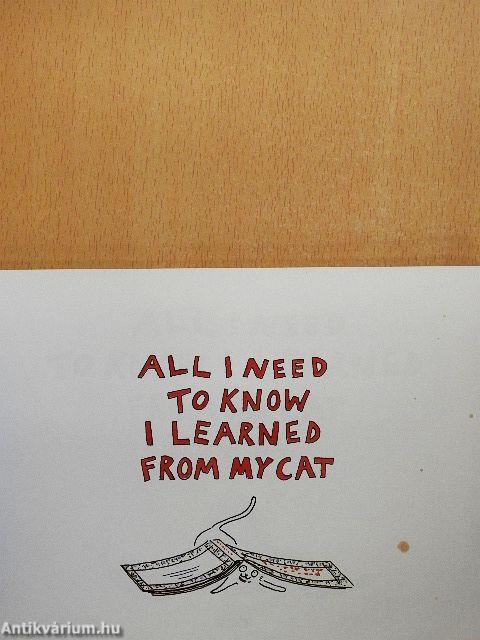 ALL I NEED
TO KNOW
I LEARNED
FROM MY CAT
Antikvárium.hu